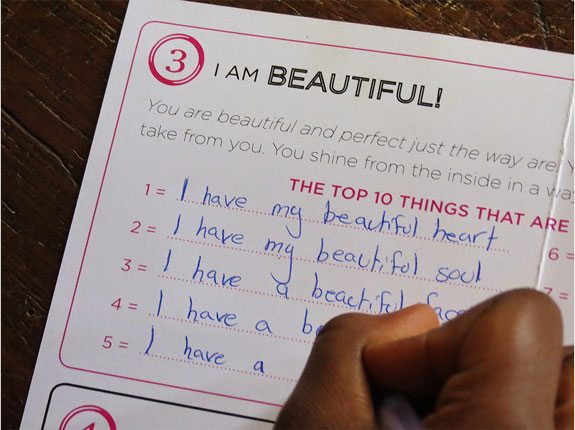 3 I AM BEAUTIFUL!
You are beautiful and perfect just the way are! Y
take from you. You shine from the inside in a wa
THE TOP 10 THINGS THAT ARE
1 = I have my beautiful heart
6 =
2 = I have my beautiful soul
7 =
3 = I have a beautiful face
4 = I have a be
5 = I have a
4